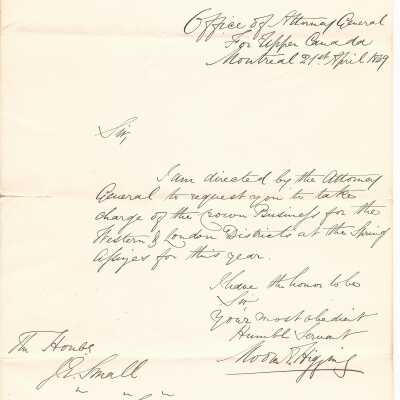 Office of Attorney General
For Upper Canada
Montreal 21st April 1849
Sir,
I am directed by the Attorney
General to request you to take
charge of the Crown Business for the
Western & London Districts at the Spring
Assizes for this year.
I have the honor to be
Sir
Your most obedient
Humble Servant
Higgins
The Honble
J.E. Small
" "